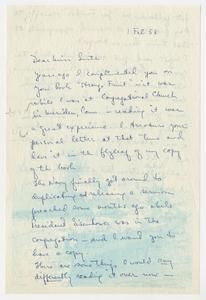 1 Feb 58
Dear Miss Smith:
Years ago I complimented you on
your book "Strange Fruit" – it was
while I was at Congregational Church
in Meriden, Conn – reading it was
a great experience. I treasure your
personal letter at that time and
have it in the flyleaf of my copy
of the book.
The Navy finally got around to
duplicating and releasing a sermon
preached some months ago while
President Eisenhower was in the
congregation – and I want you to
have a copy.
There are some things I would say
differently reading it over now –